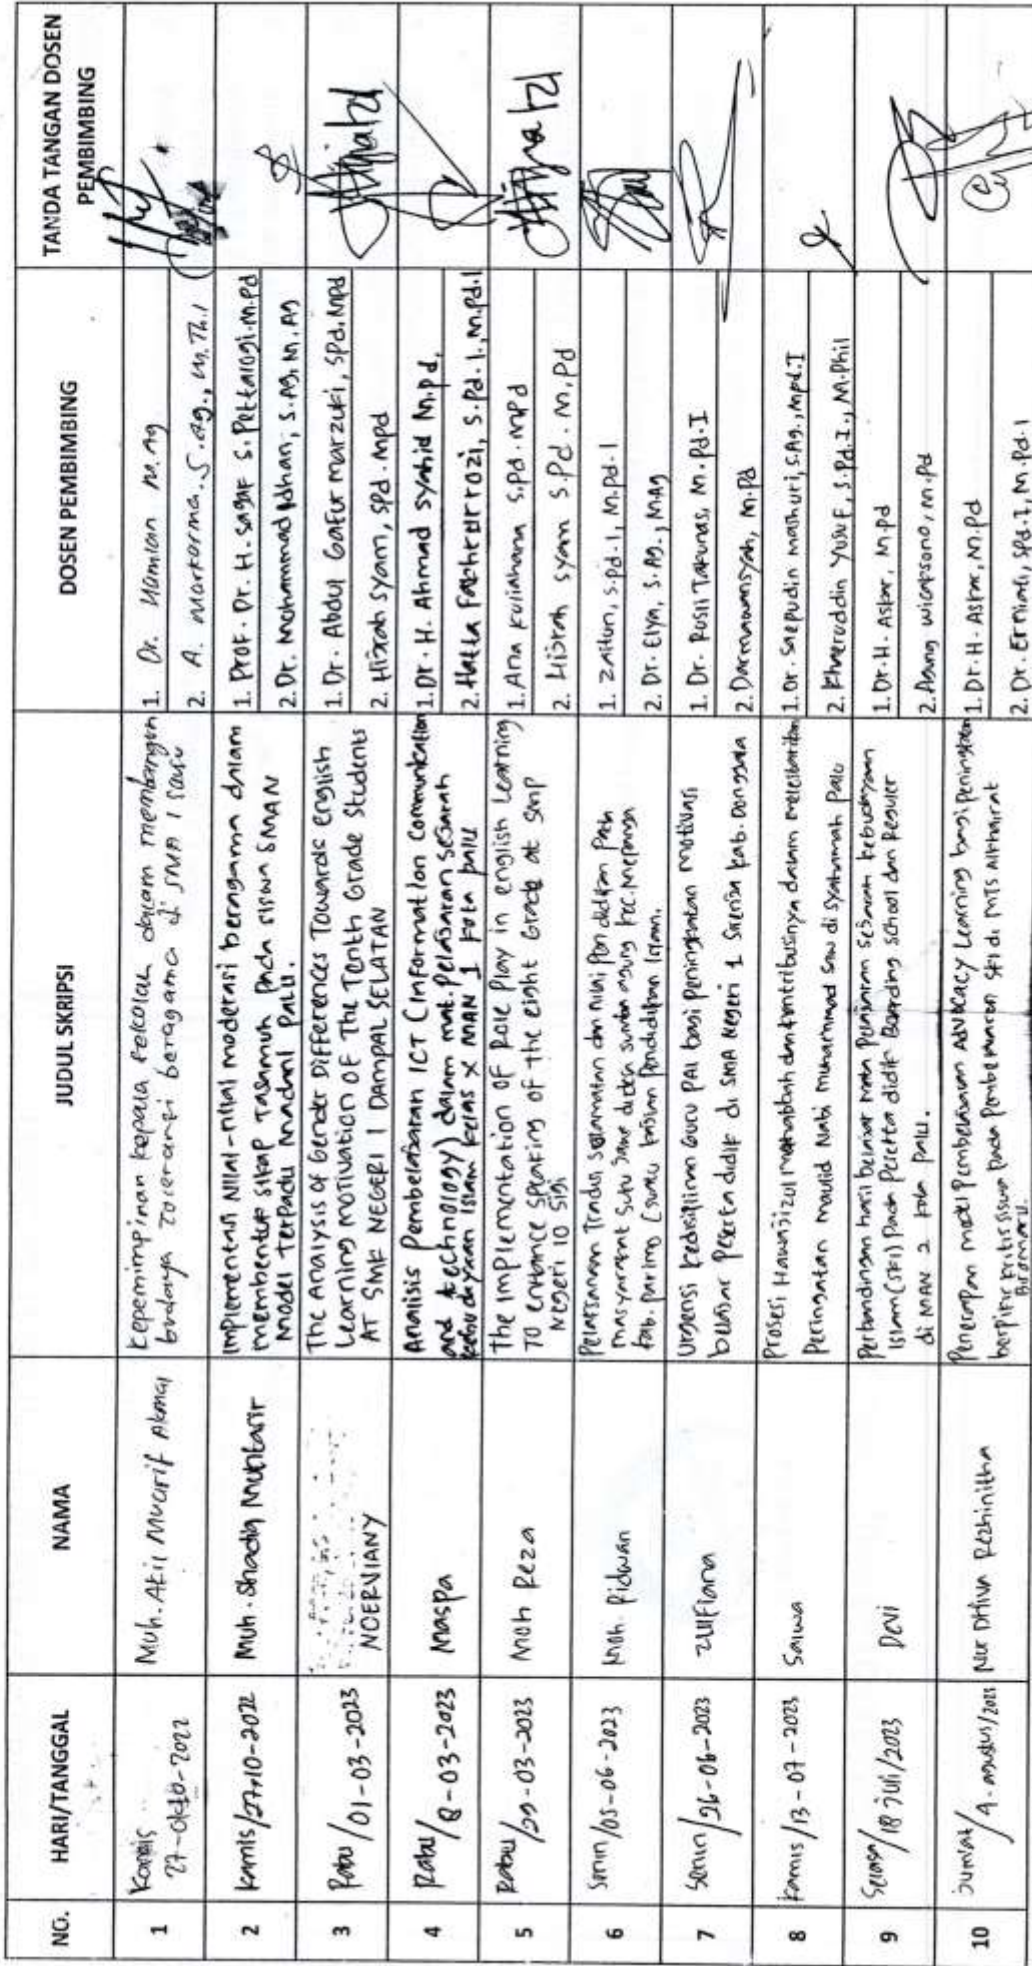 NO.
HARI/TANGGAL
NAMA
JUDUL SKRIPSI
DOSEN PEMBIMBING
TANDA TANGAN DOSEN
PEMBIMBING
1
Kamis
27-okto-2022
Muh. Akil Muarif Akmal
Kepemimpinan kepala sekolah dalam membangun
budaya toleransi beragama di SMA 1
1. Dr. Hamlan M.Ag
2. A. Markarma. S.Ag., M.Th.I
2
Kamis/27-10-2022
Muh. Shadiq Muntasir
Implementasi Nilai-nilai moderasi beragama dalam
membentuk sikap Tasamuh Pada siswa SMAN
Model Terpadu Madani Palu.
1. Prof. Dr. H. Sagaf S. Pettalogi. M.Pd
2. Dr. Mohammad Idhan, S.Ag, M.Ag
3
Rabu/01-03-2023
NOERVIANY
The Analysis of Gender Differences Towards english
Learning Motivation of The Tenth Grade Students
AT SMK NEGERI 1 DAMPAL SELATAN
1. Dr. Abdul Gafur Marzuki, SPd. MPd
2. Hijrah Syam, SPd. Mpd
4
Rabu/8-03-2023
Maspa
Analisis Pembelajaran ICT (Information Communication
and technology) dalam mat. Pelajaran sejarah
kebudayaan Islam kelas X MAN 1 kota palu
1. Dr. H. Ahmad Syahid M.pd.
2. Hatta Fakhrurrozi, S.Pd.I., M.Pd.I
5
Rabu/29-03-2023
Moh Reza
The Implementation of Role Play in english Learning
To enhance speaking of the eight Grade at SMP
Negeri 10 Sigi
1. Ana Kuliahana S.Pd. MPd
2. Hijrah syam S.Pd. M.Pd
6
Senin/05-06-2023
Moh. Ridwan
Pelaksanaan Tradisi selamatan dan nilai Pendidikan Pada
masyarakat suku Jawa di desa sumber agung kec. Mepanga
kab. parimo (suatu kajian Pendidikan Islam.
1. Zaitun, S.Pd.I, M.Pd.I
2. Dr. Elya, S.Ag., M.Ag
7
Senin/26-06-2023
Zulfiana
Urgensi Kedisiplinan Guru PAI bagi Peningkatan motivasi
belajar Peserta didik di SMA Negeri 1 Sirenja kab. Donggala
1. Dr. Rusli Takunas, M.Pd.I
2. Darmawansyah, M.Pd
8
Kamis/13-07-2023
Salwa
Prosesi Hawajizul mahabbah dan kontribusinya dalam melestarikan
Peringatan maulid Nabi muhammad saw di syahamah Palu
1. Dr. Saepudin Mashuri, S.Ag., Mpd.I
2. Khaeruddin Yusuf, S.Pd.I., M.Phil
9
Selasa/18 Juli/2023
Devi
Perbandingan hasil belajar mata Pelajaran sejarah kebudayaan
Islam (SKI) Pada Peserta didik Boarding school dan Reguler
di MAN 2 kota PALU.
1. Dr. H. Askar, M.pd
2. Agung wicaksono, M.Pd
10
Jumat/4-agustus/2023
Nur Dhiva Rezhinitha
Penerapan model Pembelajaran Advocacy Learning bagi peningkatan
berpikir kritis siswa pada Pembelajaran SKI di MTS Alkhairat
Biromaru.
1. Dr. H. Askar, M.Pd
2. Dr. Erniati, SPd.I, M.Pd.I